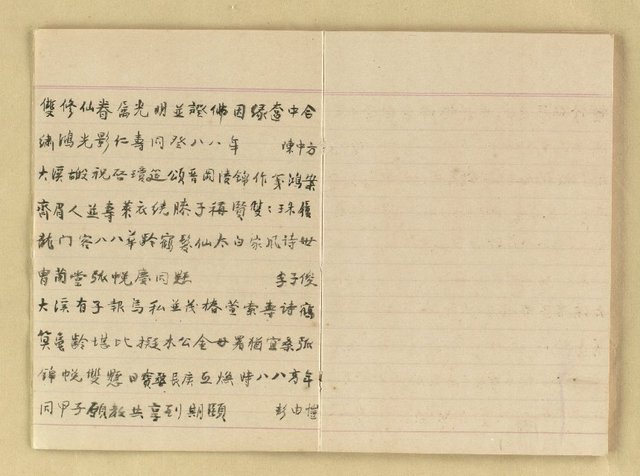 雙修仙眷屬光明並證佛因緣奩中合
鴻光影仁壽同登八八年 陳中方
大溪皷祝啓瓊筵頌晉岡陵錦作箋鴻案
齊眉人並壽萊衣繞膝子稱賢雙珠履
龍门客八八華齡鶴髮仙太白家風詩世
胄萱堂張帨慶同懸 李子俊
大溪有子報烏私並茂椿萱索壽詩鶴
算龜齡堪比擬木公金母署猶宜桑弧
錦帨雙懸日寶婺長庚互煥時八八高年
同甲子願教共享到期頤 彭由